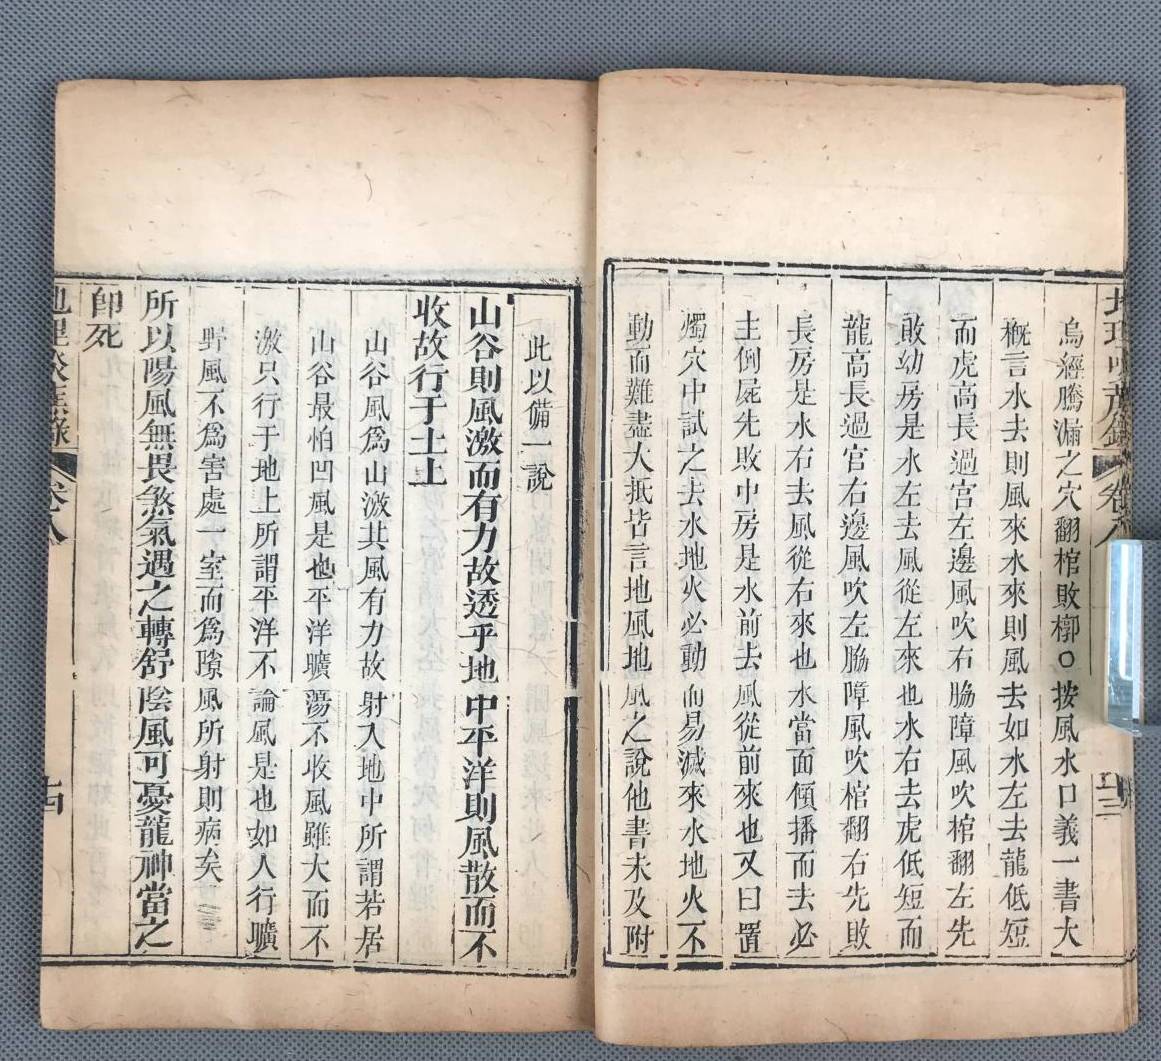 烏經騰漏之穴翻棺敗槨○按風水口義一書大
概言水去則風來水來則風去如水左去龍低短
而虎高長過宮左邊風吹右脇障風吹棺翻左先
敗幼房是水左去風從左來也水右去虎低短而
龍高長過宮右邊風吹左脇障風吹棺翻右先敗
長房是水右去風從右來也水當面傾播而去必
主倒屍先敗中房是水前去風從前來也又曰置
燭穴中試之去水地火必動而易滅來水地火不
動而難盡大抵皆言地風地風之說他書未及附
此以備一說
山谷則風激而有力故透乎地中平洋則風散而不
收故行于土上
山谷風爲山激其風有力故射入地中所謂若居
山谷最怕凹風是也平洋曠蕩不收風雖大而不
激只行于地上所謂平洋不論風是也如人行曠
野風不爲害處一室而爲隙風所射則病矣
所以陽風無畏煞氣遇之轉舒陰風可憂龍神當之
卽死
卷八